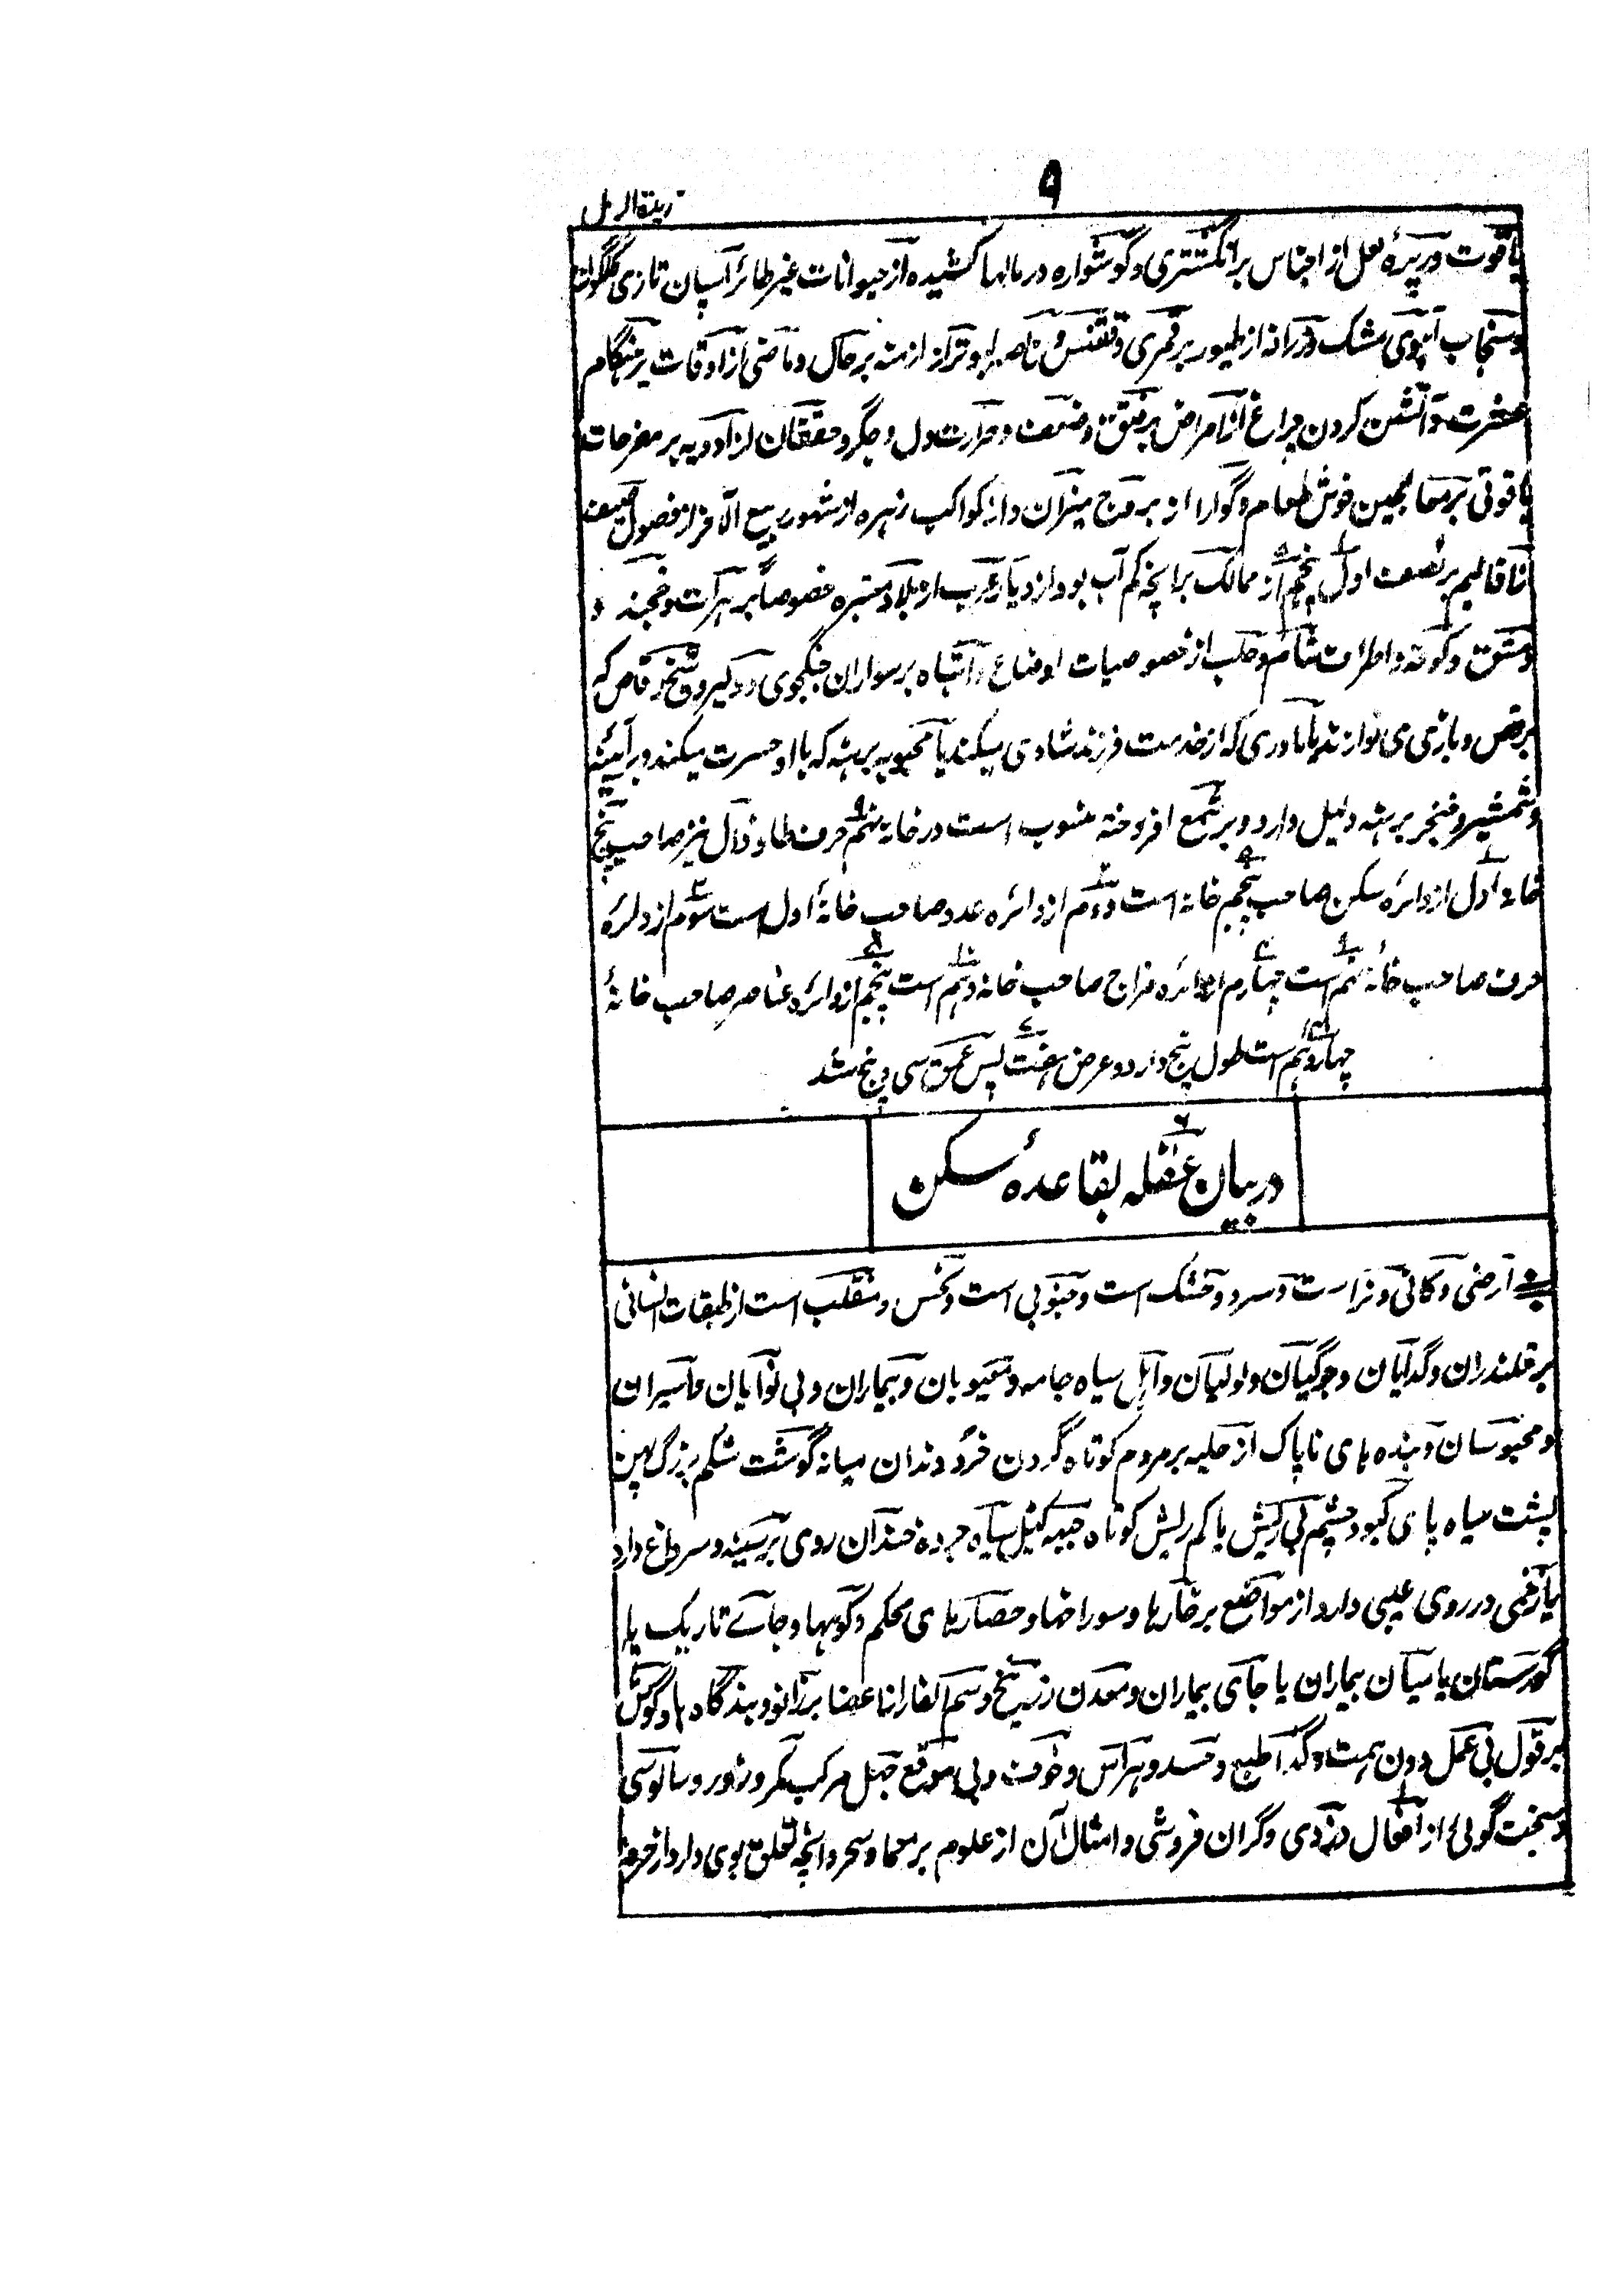 ۹
زبدة الرمل
یاقوت و ریزه لعل از اجناس بر انگشتری و گوشواره در مالها کشیده از حیوانات غیر طائر اسپان تازی
و سنجاب آهوی مشک از طیور بر قمری و ققنس و کبوتر از ازمنه بر حال و ماضی از اوقات بر هنگام
عشرت و آتش کردن چراغ از امراض بر قلق و ضعف و حرارت دل و جگر و خفقان از ادویه بر مفرحات
یاقوتی بر معاجین خوش طعام و گوارا از بروج میزان و از کواکب زهره از شهور ربیع الآخر از فصول
از اقالیم بر نصف اول پنجم از ممالک بر آنچه کم آب بود از دیار عرب از بلاد خصوصا بر هرات و خجند و
دمشق و کوفه و اطراف شام و حلب از خصوصیات اوضاع و اشباه بر سواران جنگجوی و شخ رقاص که
برقص و بازی می نوازند یا مادری که از خدمت فرزند شادی میکند یا محبوبه برهنه که با او حسرت میکند و بر آئینه
و شمشیر و خنجر برهنه دلیل دارد و بر شمع افروخته منسوب است در خانه نهم حرف طا و ذال نیز صاحب پنج
خانه اول از دائره سکن صاحب پنجم خانه است دوم از دائره عدد صاحب خانهٔ اول است سوم از دائره
حرف صاحب خانهٔ نهم است چهارم از دائره مزاج صاحب خانه دهم است پنجم از دائره عناصر صاحب خانهٔ
چهاردهم است طول پنج دارد و عرض هفت پس عمق سی و پنج شد
در بیان عقله بقاعدهٔ سکن
ارضی و کانی و نر است و سرد و خشک است و جنوبی است و نحس و منقلب است از طبقات انسانی
بر قلندران و گدایان و جوگیان و لولیان و اهل سیاه جامه و معیوبان و بیماران و بی نوایان و اسیران
و محبوسان و بنده های ناپاک از حلیه بر مردم کوتاه گردن خرد دندان میانه گوشت شکم بزرگ پهن
پشت سیاه پای کبود چشم بی ریش یا کم ریش کوتاه جبهه سیاه چرده خندان روی بر سینه و سر داغ دارد
یا زخمی در روی عیبی دارد از مواضع بر غارها و سوراخها و حصارهای محکم و کوهها و جاے تاریک یا
گورستان یا میان بیماران یا جای بیماران و معدن زرنیخ و سم الفار از اعضا بر زانو و بندگاه ها و گوش
بر قول بی عمل دون همت و گدا طبع و حسد و هراس و خوف و بی موقع جهل مرکب مکر و زور و سالوسی
و سخت گوئی از افعال دزدی و گران فروشی و امثال آن از علوم بر معما و سحر و آنچه تعلق بوی دارد از